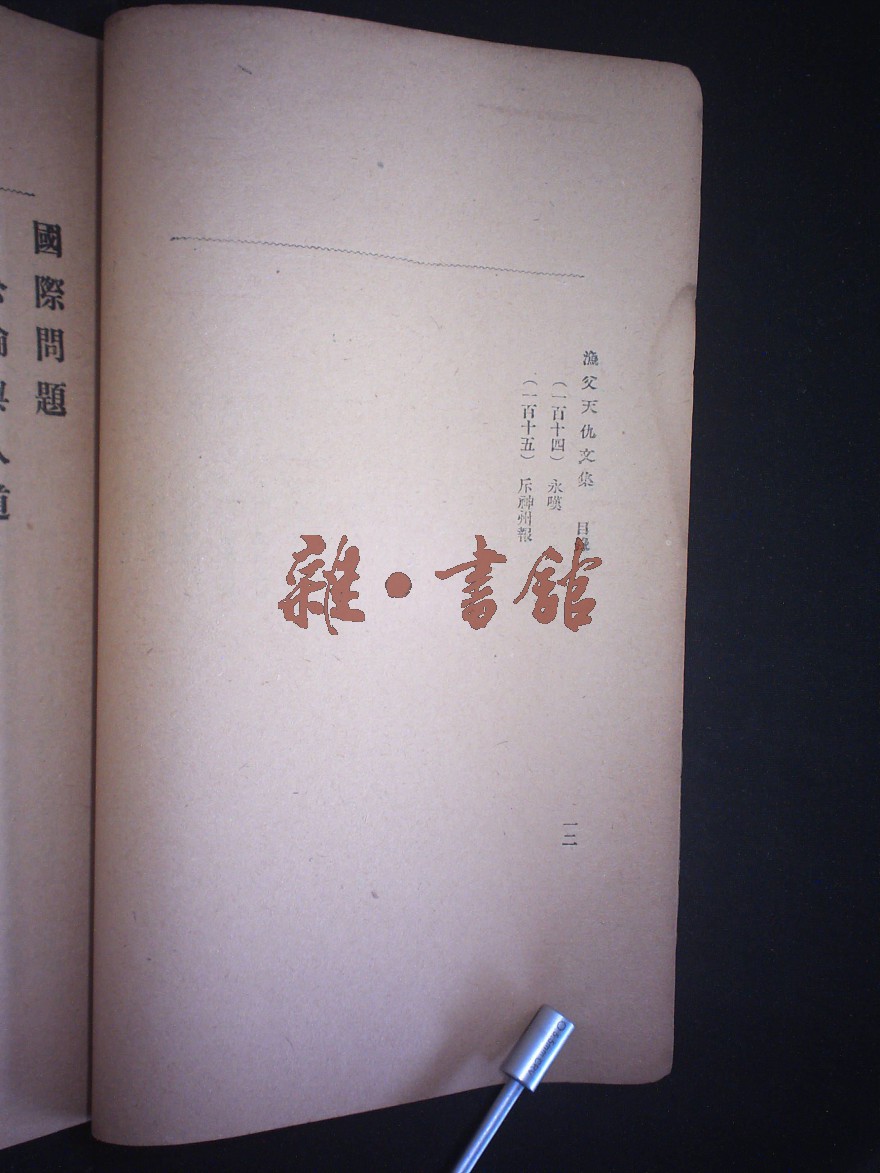 漁父天仇文集　目錄
（一百十四）　永嘆
（一百十五）　斥神州報
一二
國際問題
雜・書館